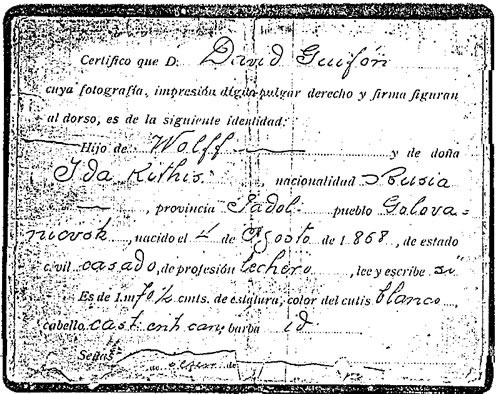 Certifico que D. David Guifón
cuya fotografía, impresión dígito-pulgar derecho y firma figuran
al dorso, es de la siguiente identidad:
Hijo de Wolff y de doña
Ida Kithis, nacionalidad Rusia
, provincia Padol pueblo Golova=
nievsk, nacido el 4 de Agosto de 1.868, de estado
civil casado, de profesión lechero, lee y escribe si
Es de 1.m 70½ cmts. de estatura, color del cutis blanco
cabello cast. ent. can; barba id.
Señas